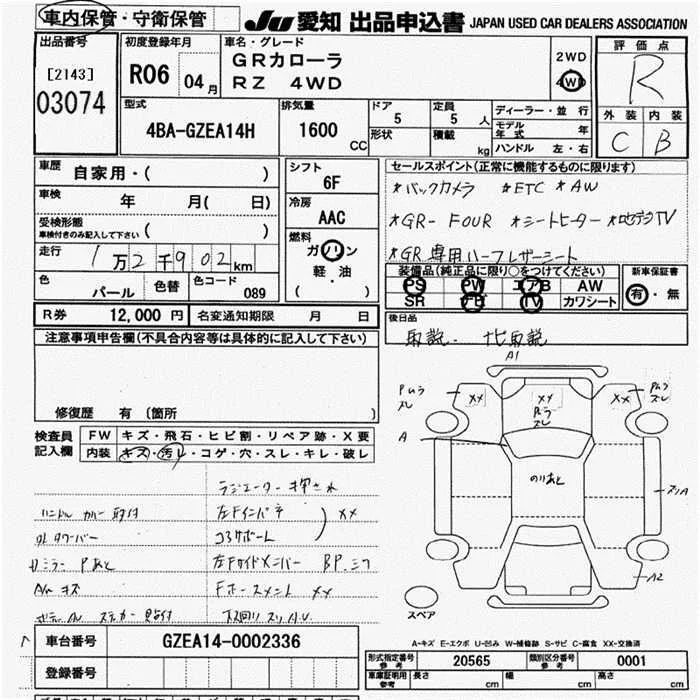 車内保管・守衛保管
JU 愛知 出品申込書 JAPAN USED CAR DEALERS ASSOCIATION
出品番号
[2143]
03074
初度登録年月
R06 04月
車名・グレード
GRカローラ
RZ 4WD
2WD
4WD
評価点
R
外装 内装
C B
型式
4BA-GZEA14H
排気量
1600 CC
ドア 5
形状
定員 5 人
積載 kg
ディーラー・並行
モデル年式 年
ハンドル 左・右
車歴 自家用・( )
車検 年 月( 日)
受検形態
車検付きのみ記入して下さい ( )
走行 1万2千902km
色 パール 色替 色コード 089
シフト
6F
冷房
AAC
燃料
ガソリン
軽・油
( )
セールスポイント(正常に機能するものに限ります)
*バックカメラ *ETC *AW
*GR-FOUR *シートヒーター *地デジTV
*GR専用ハーフレザーシート
装備品(純正品に限り○をつけてください)
PS PW エアB AW
SR ナビ TV カワシート
新車保証書
有・無
R券 12,000 円 名変通知期限 月 日
後日品
取説・ナビ取説
注意事項申告欄(不具合内容等は具体的に記入して下さい)
修復歴 有(箇所 )
検査員記入欄
FW キズ・飛石・ヒビ割・リペア跡・X要
内装 キズ・汚レ・コゲ・穴・スレ・キレ・破レ
ラジエーター押され
ハンドルカバー取付 左Fインパネ XX
コアサポート
ミラー Pあと 左Fサイドメンバー
キズ Fホースメント XX
ステカー 下廻りスリ
A1
Pムラ スレ
XX
XX
Pムラ スレ
XX
Pムラ スレ
A
のりあと
スリA
A2
スペア
A-キズ E-エクボ U-凹み W-補修跡 S-サビ C-腐食 XX-交換済
車台番号 GZEA14-0002336
登録番号
形式指定番号 参考 20565 類別区分番号 参考 0001
車庫証明用 参考 長さ cm 幅 cm 高さ cm